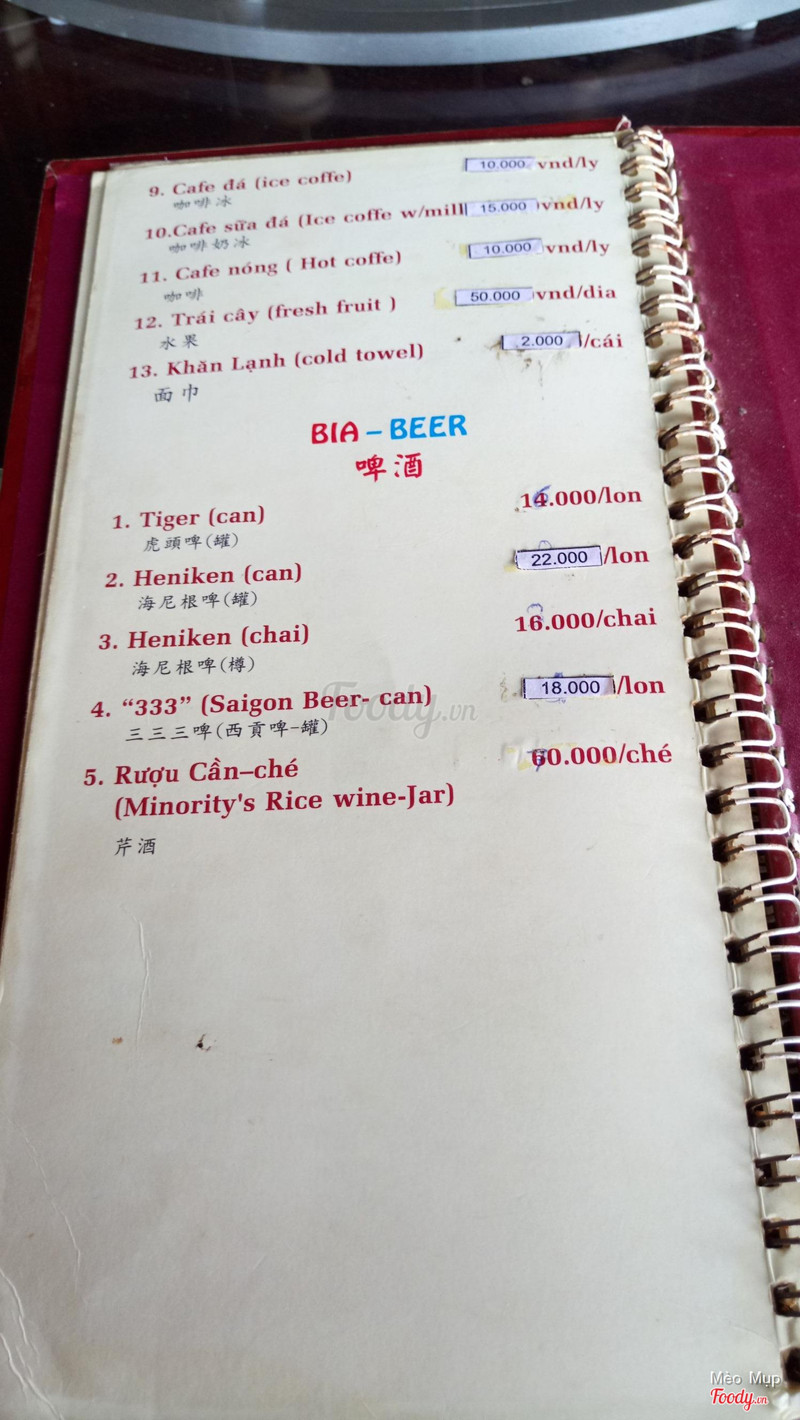 9. Cafe đá (ice coffe) 10.000 vnd/ly
咖啡冰
10.Cafe sữa đá (Ice coffe w/mill 15.000 vnd/ly
咖啡奶冰
11. Cafe nóng ( Hot coffe) 10.000 vnd/ly
咖啡
12. Trái cây (fresh fruit ) 50.000 vnd/dia
水果
13. Khăn Lạnh (cold towel) 2.000 /cái
面巾
BIA – BEER
啤酒
1. Tiger (can) 14.000/lon
虎頭啤(罐)
2. Heniken (can) 22.000 /lon
海尼根啤(罐)
3. Heniken (chai) 16.000/chai
海尼根啤(樽)
4. “333” (Saigon Beer- can) 18.000 /lon
三三三啤(西貢啤-罐)
5. Rượu Cần–ché 60.000/ché
(Minority's Rice wine-Jar)
芹酒
Foody.vn
Mèo Mụp
Foody.vn